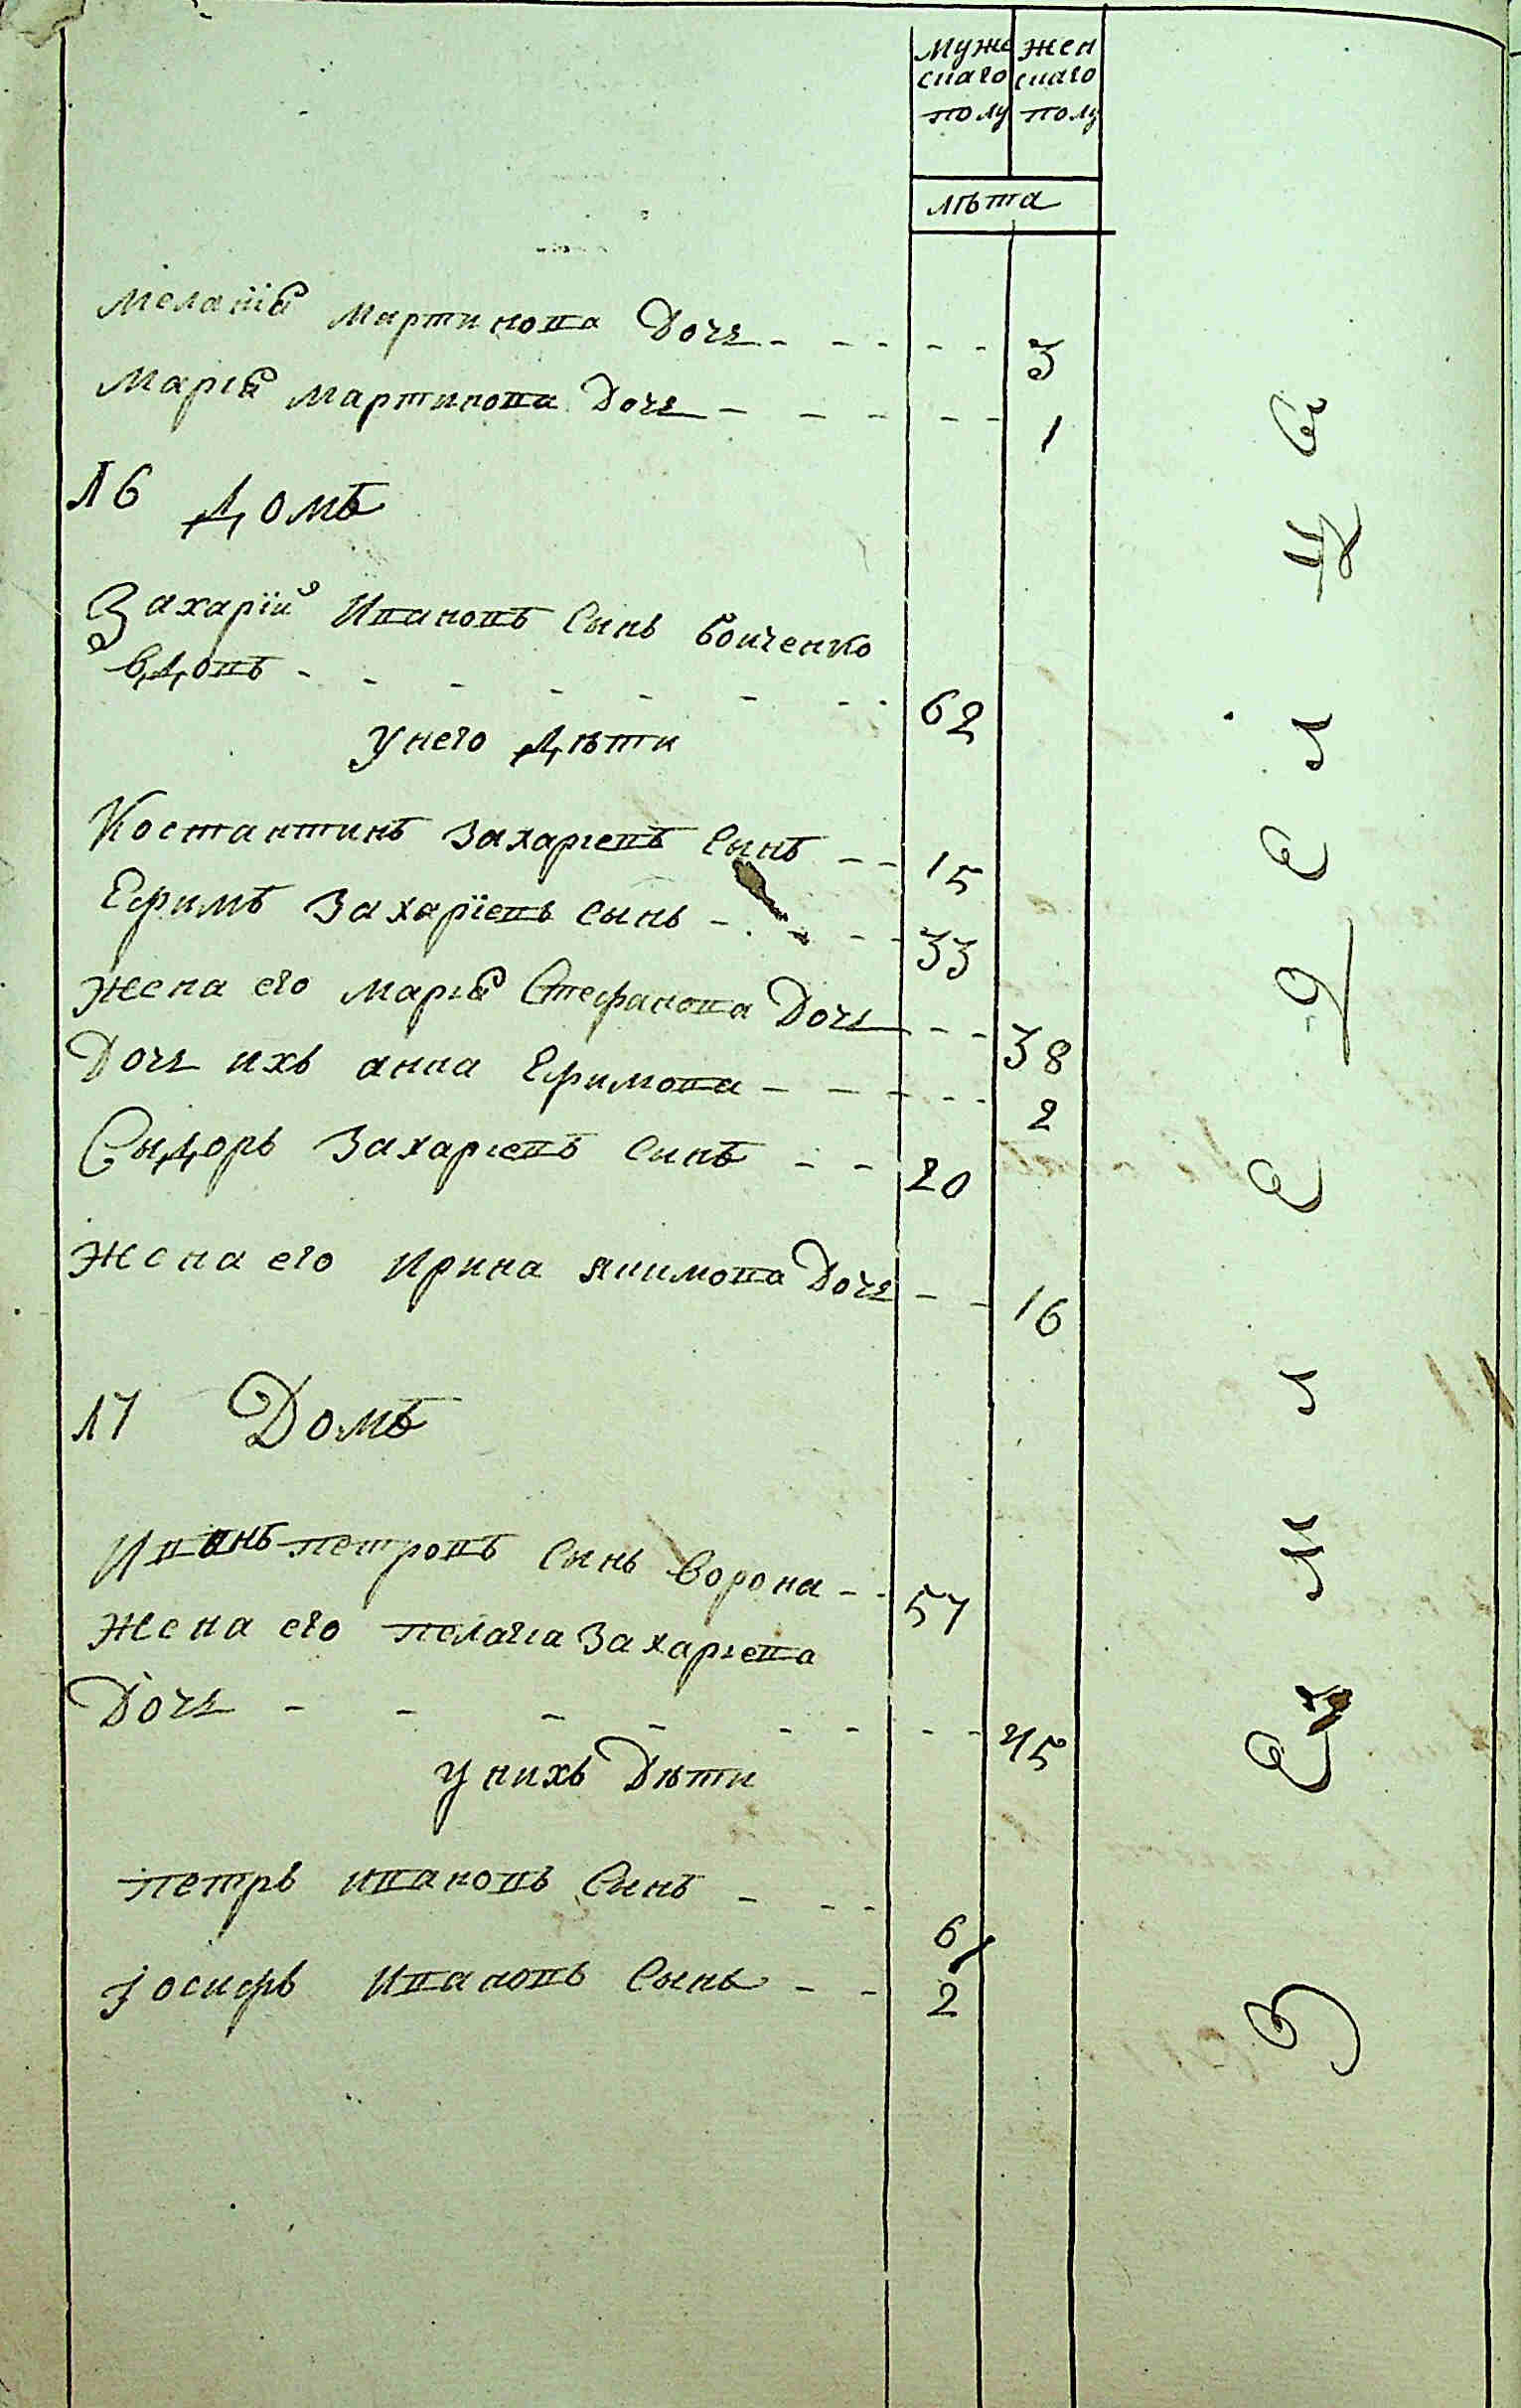 Мужс Жен
скаго скаго
полу полу
лѣта
Меланія Мартинова Дочь 3
Марія Мартинова Дочь 1
16 Домъ
Захарій Ивановъ Сынъ Бойченко
вдовъ 62
у него дѣти
Костантинъ Захаріевъ Синъ 15
Ефимъ Захаріевъ сынъ 33
Жена его Марія Стефанова Дочь 38
Дочь ихъ анна Ефимова 2
Сыдоръ Захаріевъ синъ 20
Жена его Ирина якимова Дочь 16
17 Домъ
Иванъ петровъ Сынъ Ворона 57
Жена его пелагіа Захаріева
Дочь 45
у нихъ Дѣти
петръ ивановъ Синъ 6
Іосифъ Ивановъ Сынъ 2